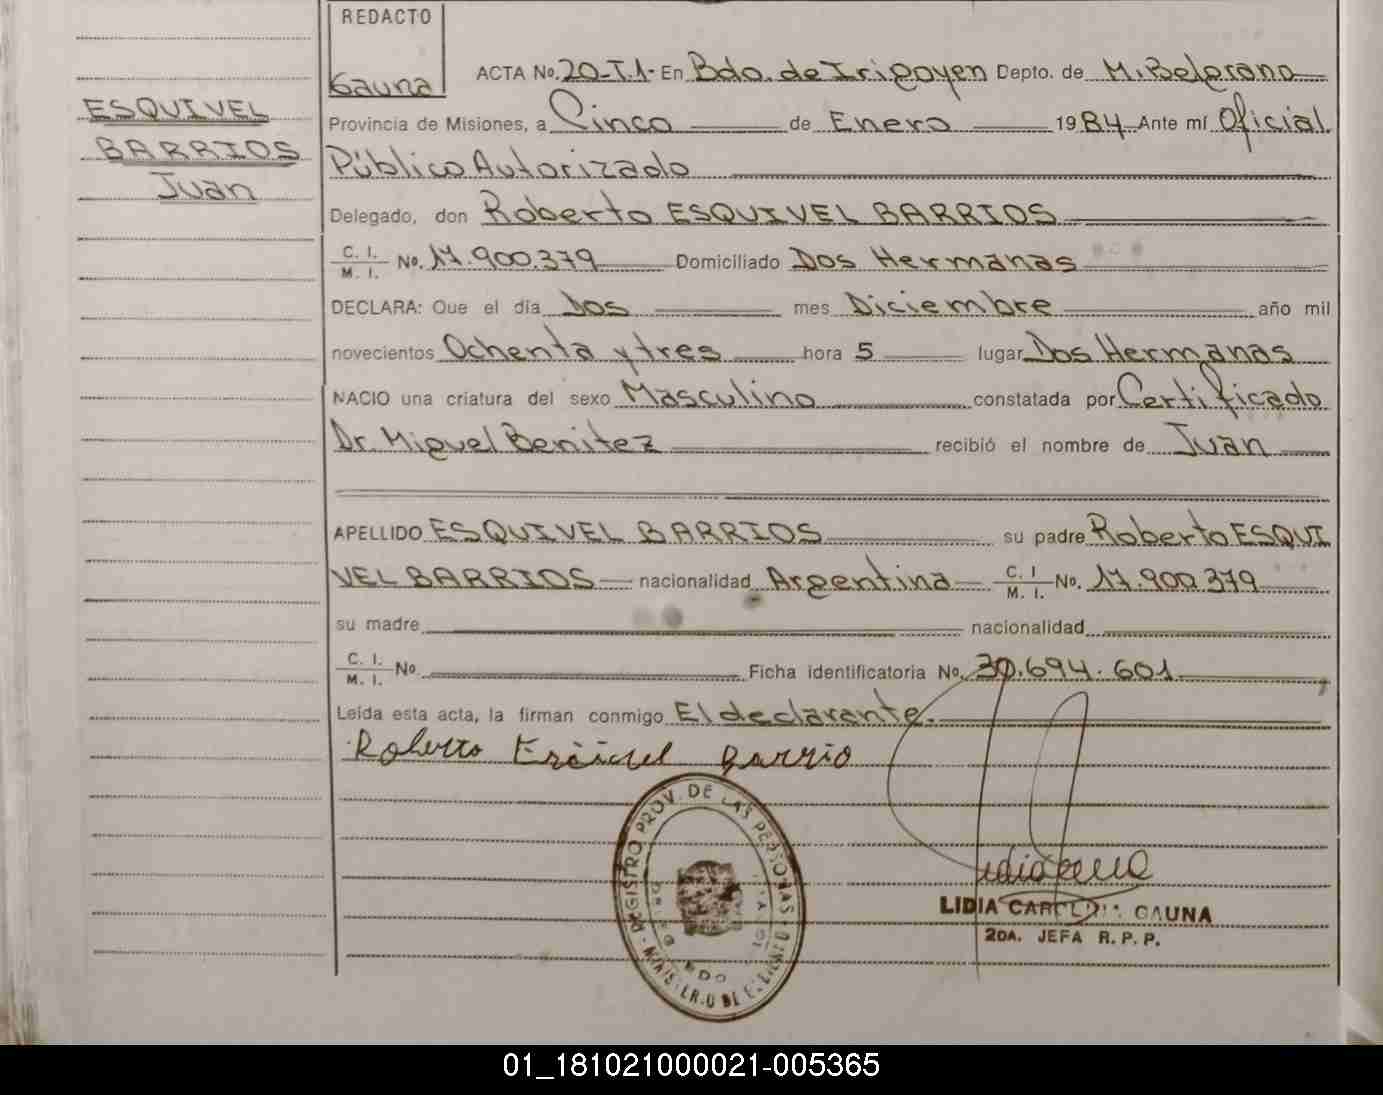 REDACTO
Gauna
ESQUIVEL
BARRIOS
Juan
ACTA No. 20-T.1- En Bdo. de Irigoyen Depto. de M. Belgrano
Provincia de Misiones, a Cinco de Enero 1984 Ante mí Oficial
Público Autorizado
Delegado, don Roberto ESQUIVEL BARRIOS
C. I.
M. I. No. 17.900.379 Domiciliado Dos Hermanas
DECLARA: Que el día Dos mes Diciembre año mil
novecientos Ochenta y tres hora 5 lugar Dos Hermanas
NACIO una criatura del sexo Masculino constatada por Certificado
Dr. Miguel Benitez recibió el nombre de Juan
APELLIDO ESQUIVEL BARRIOS su padre Roberto ESQUI
VEL BARRIOS nacionalidad Argentina C. I. M. I. No. 17.900.379
su madre nacionalidad
C. I.
M. I. No Ficha identificatoria No. 30.694.601
Leída esta acta, la firman conmigo El declarante.
Roberto Esquivel Barrio
REGISTRO PROV. DE LAS PERSONAS
MINISTERIO DE GOBIERNO
LIDIA CAROLINA GAUNA
2DA. JEFA R. P. P.
01_181021000021-005365